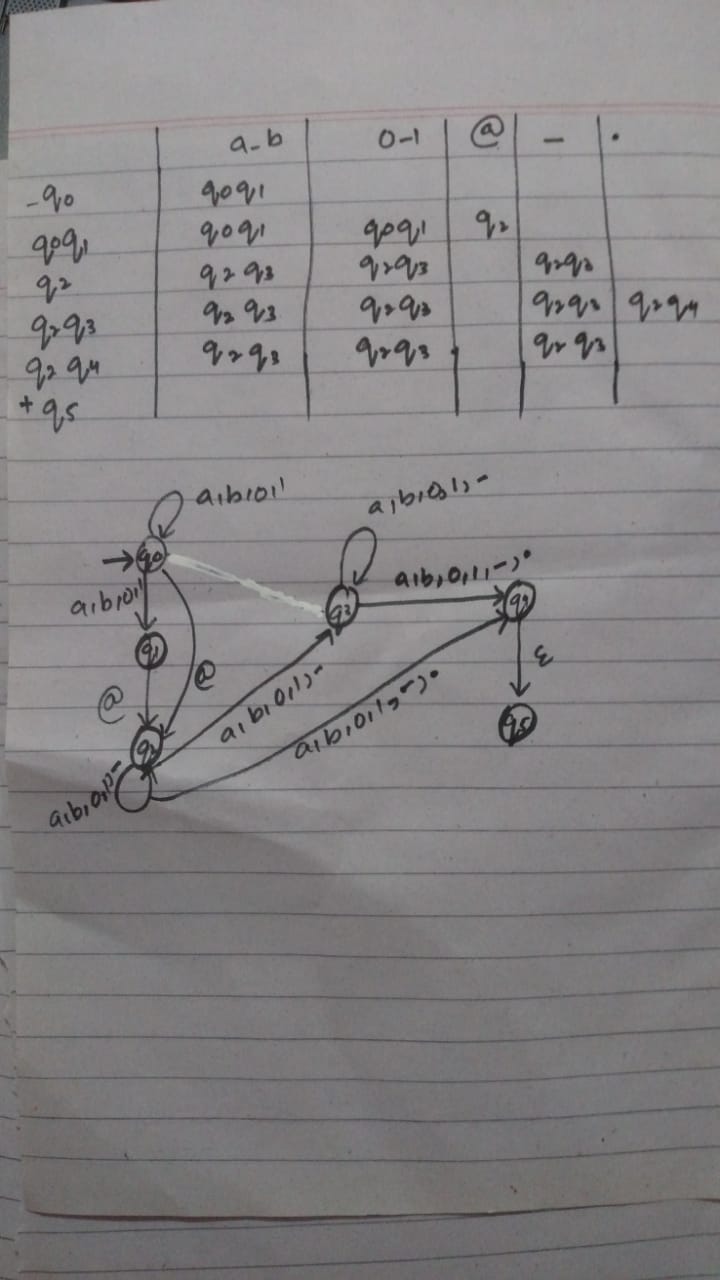 a-b 0-1 @ - .
-q0 q0q1
q0q1 q0q1 q0q1 q2
q2 q2q3 q2q3 q2q3
q2q3 q2q3 q2q3 q2q3 q2q4
q2q4 q2q3 q2q3 q2q3
+q5
a,b,0,1
a,b,0,1,-
q0
a,b,0,1,-,.
a,b,0,1
q3
q4
q1
ε
@
@
a,b,0,1,-
q2
a,b,0,1,-,.
q5
a,b,0,1,-